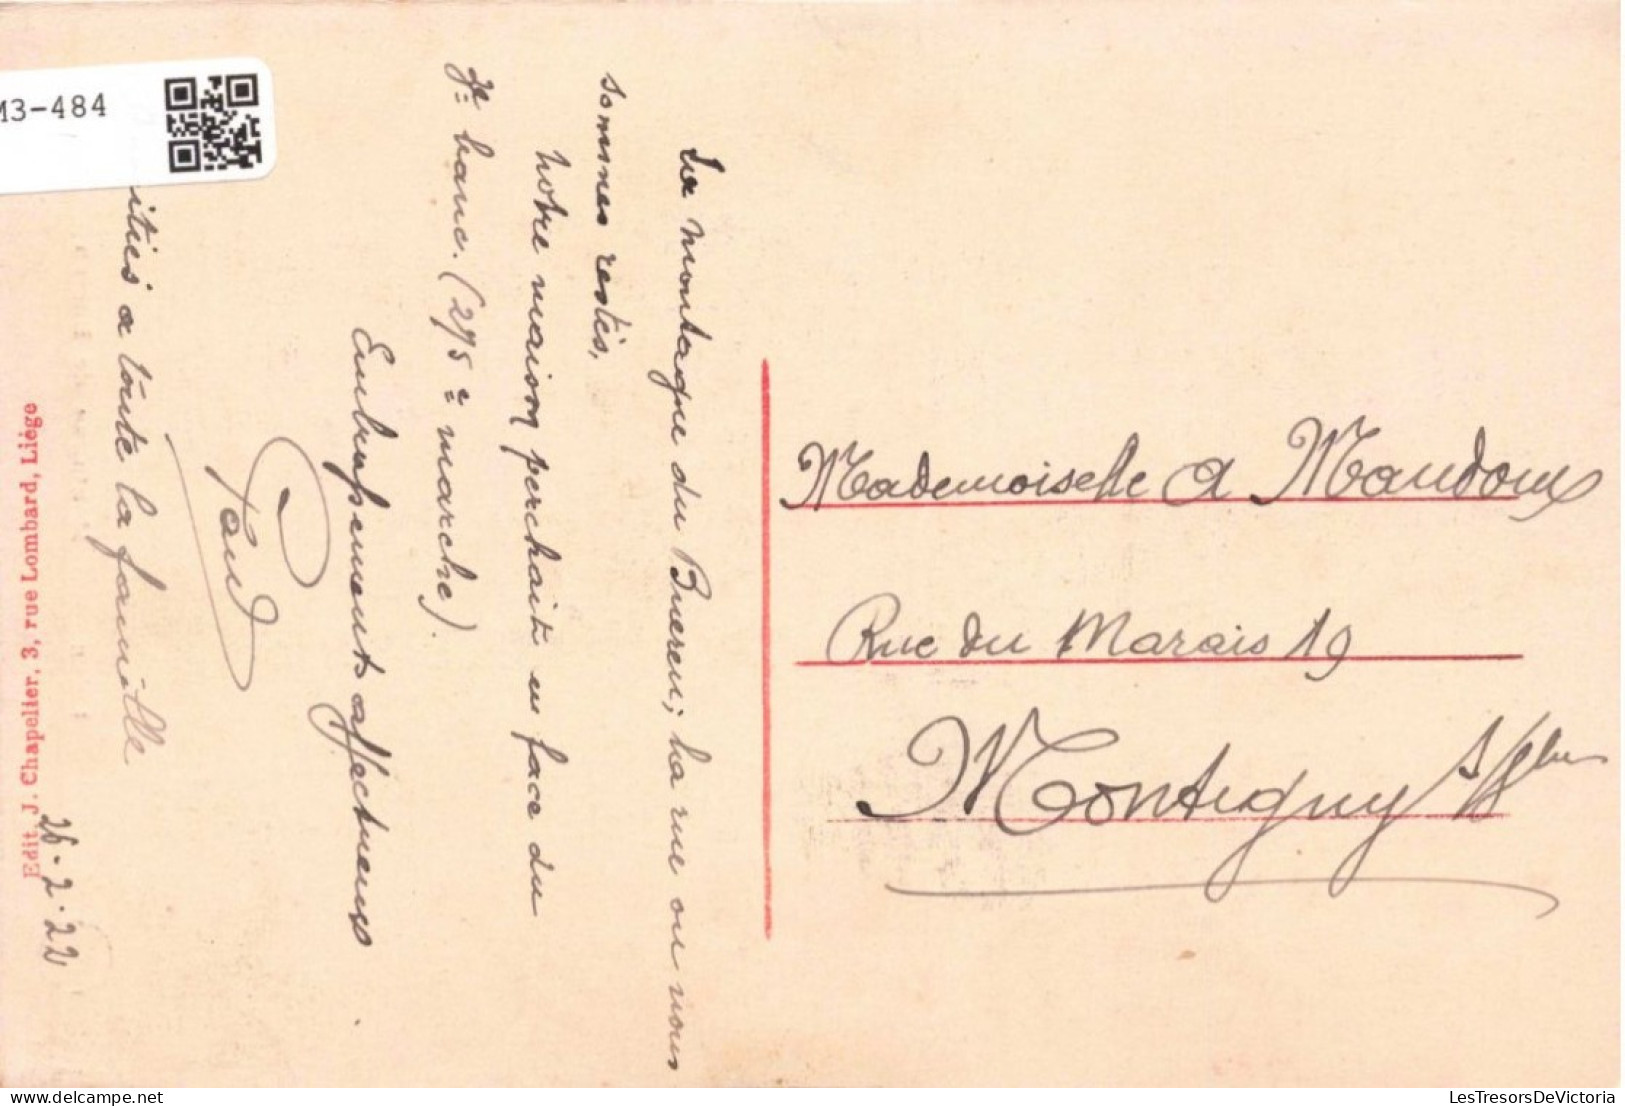 M3-484
La montagne du Bueren; la rue ou nous
sommes restés.
Notre maison perchait en face du
7e banc. (275e marche).
Embrassements affectueux
itiés a toute la famille
26.2.22
Edit. J. Chapelier, 3, rue Lombard, Liége
Mademoiselle A Mandoux
Rue du Marais 19
Montigny s/Sbre
LesTresorsDeVictoria
delcampe.net